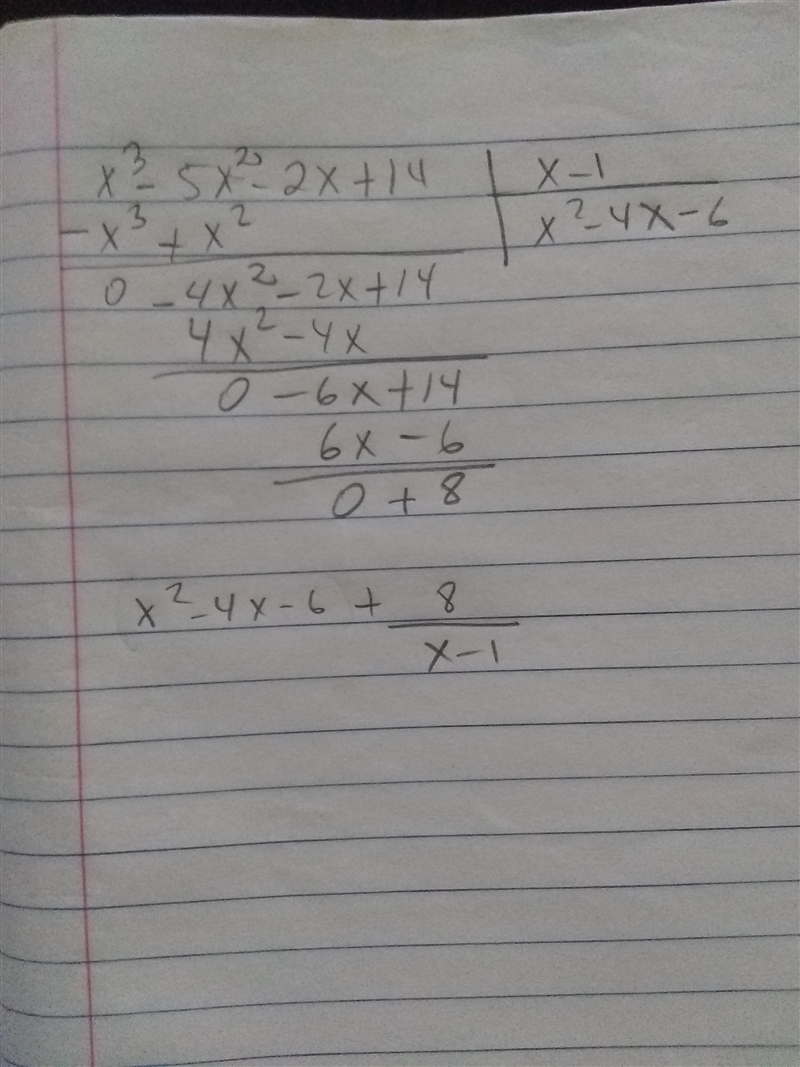 x³ - 5x² - 2x + 14 | x - 1
-x³ + x² | x² - 4x - 6
0 - 4x² - 2x + 14
4x² - 4x
0 - 6x + 14
6x - 6
0 + 8
x² - 4x - 6 + 8
x - 1